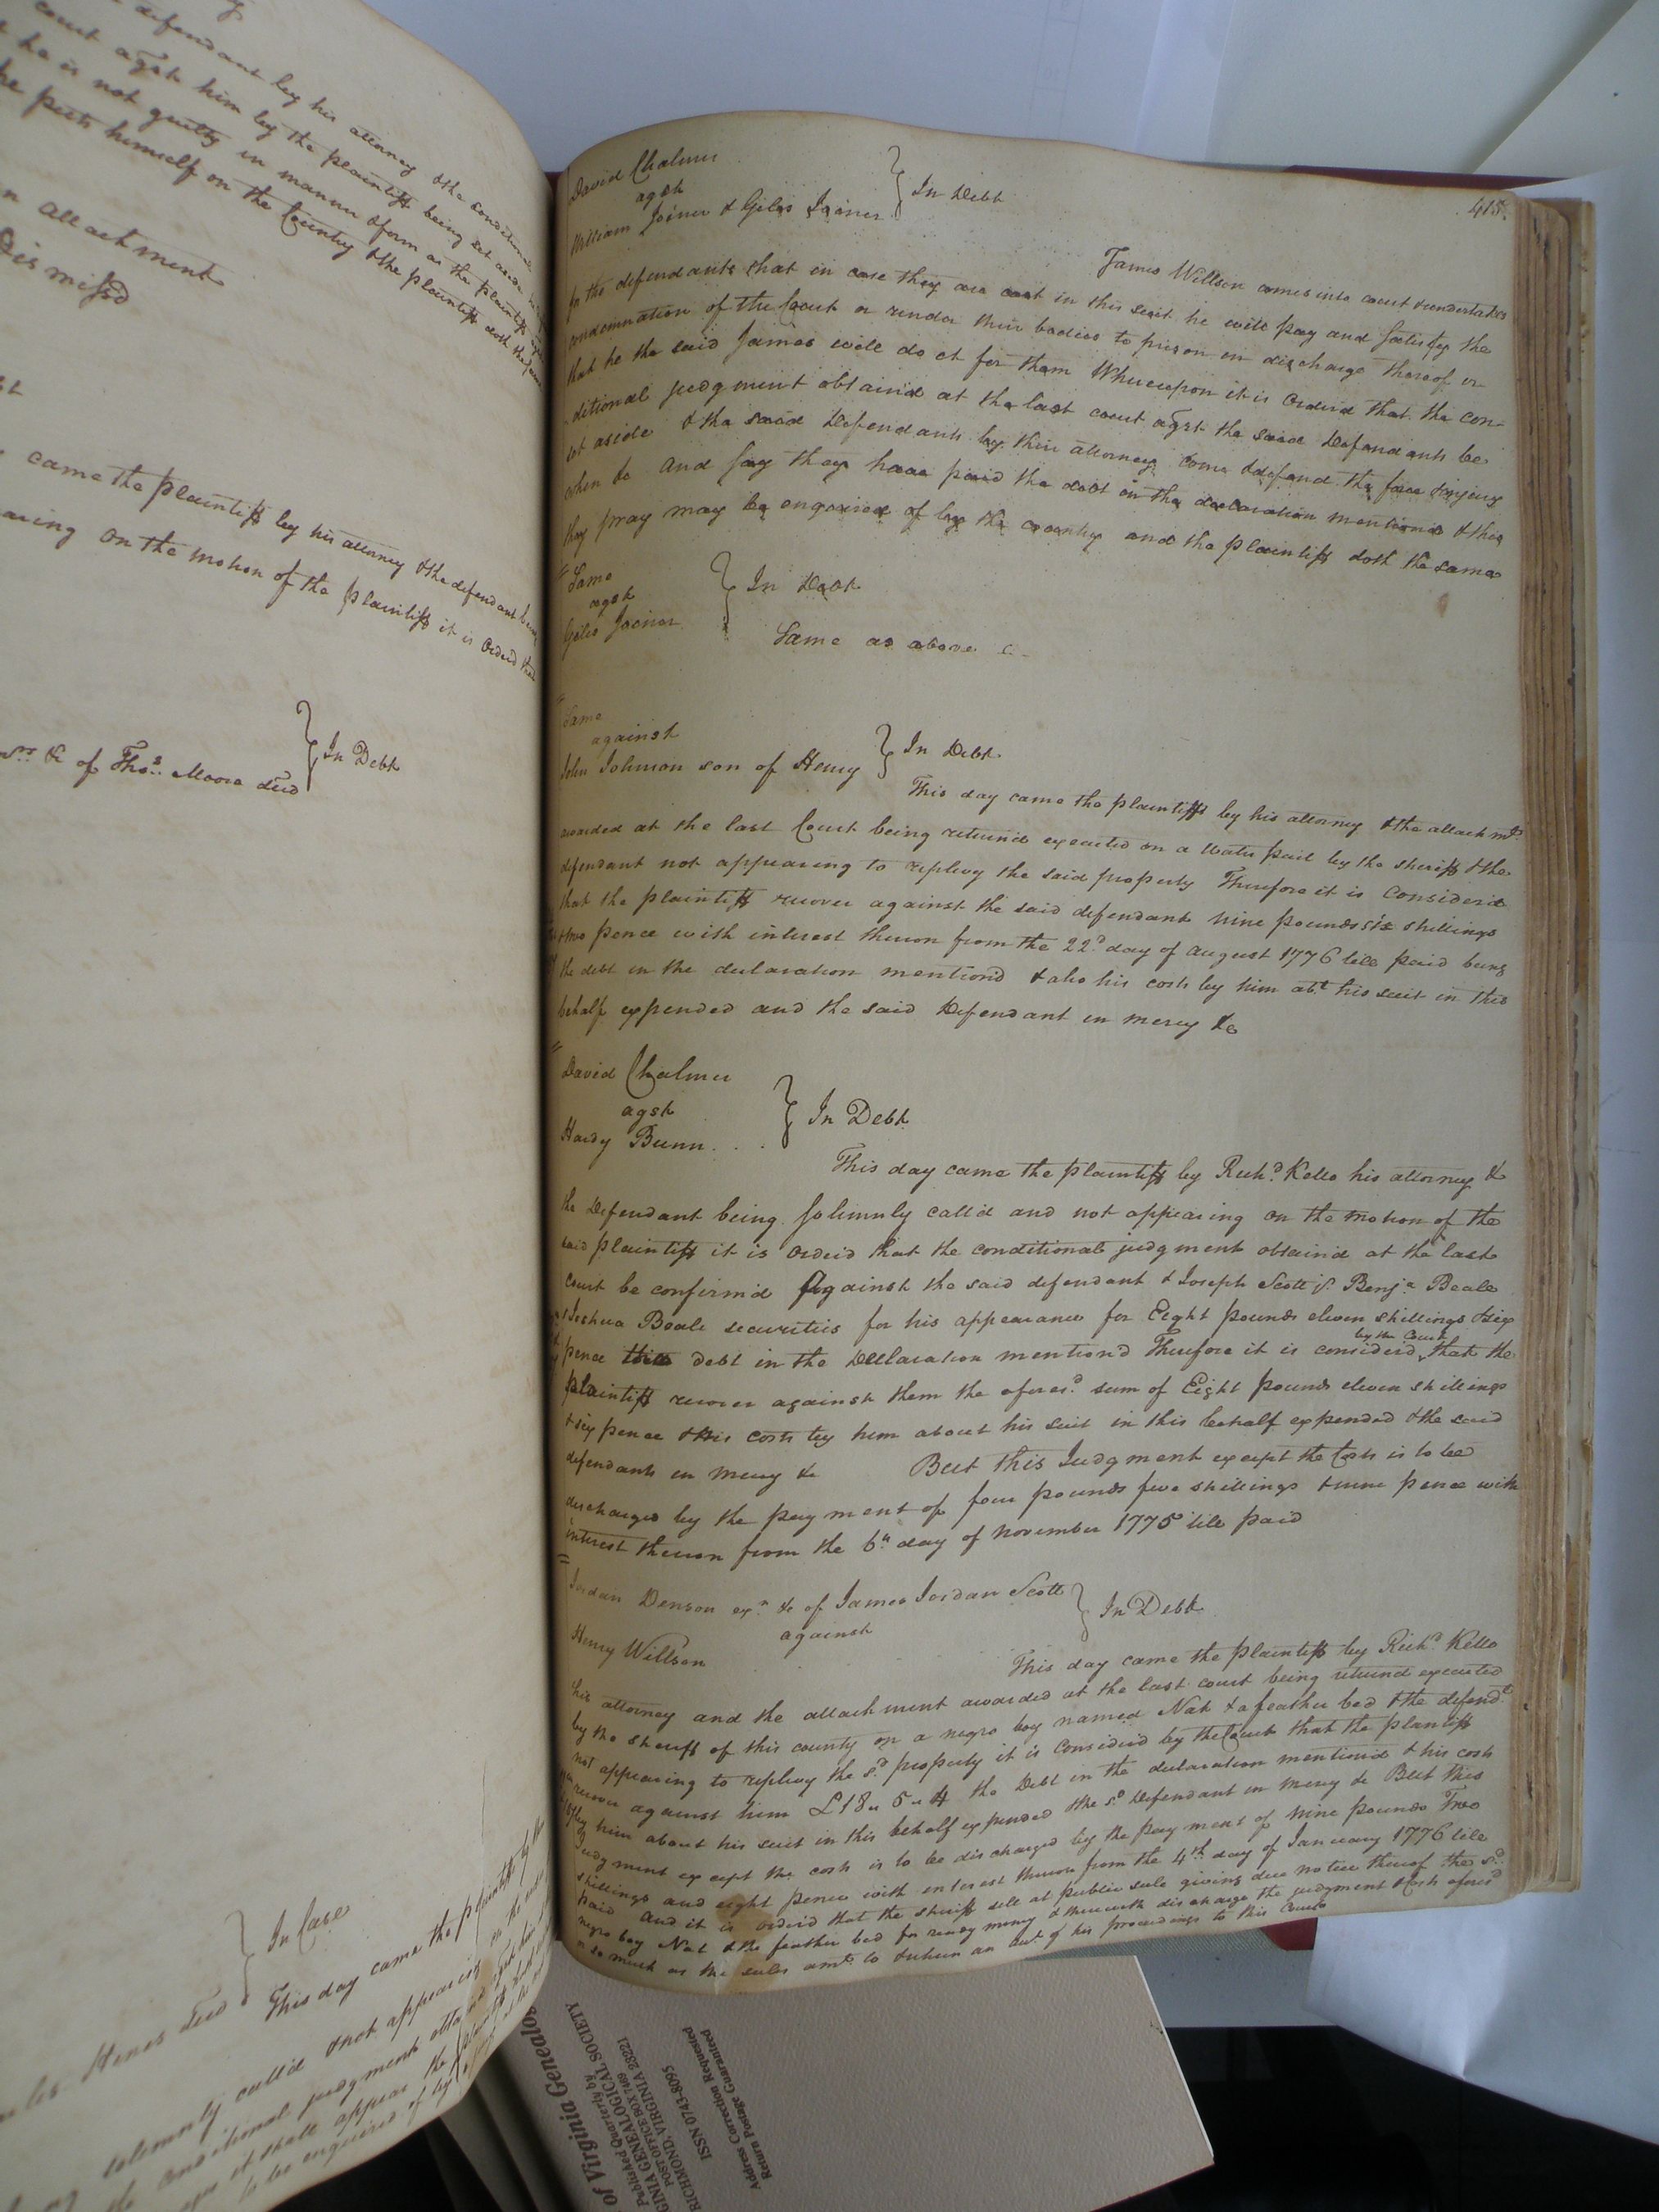 defendant by his attorney & the conditional
court agst him by the plaintiff being set aside
he is not guilty in manner & form as the plaintiff
he puts himself on the Country & the plaintiff doth the same
n attachment
Dismissd
came the plaintiff by his attorney & the defendant being
aring On the motion of the plaintiff it is Orderd that
&c of Thos. Moore decd } In Debt
In Case
This day came the plaintiff by
solemnly calld & not appearing
conditional judgment obtaind
it shall appear the
to be enquired of by
415.
David Chalmer
agst
William Joiner & Giles Joiner } In Debt
James Willson comes into court & undertakes
for the defendants that in case they are cast in this suit he will pay and satisfy the
condemnation of the Court or render their bodies to prison in discharge thereof or
that he the said James will do it for them Whereupon it is Orderd that the con-
ditional judgment obtaind at the last court agst the said Defendants be
set aside & the said Defendants by their attorney come & defend the force & injury
when &c And say they have paid the debt in the declaration mentiond & this
they pray may be enquired of by the country and the plaintiff doth the same
Same
agst
Giles Joiner } In Debt
Same as above
Same
against
John Johnson son of Henry } In Debt
This day came the plaintiff by his attorney & the attachmt.
awarded at the last Court being returnd executed on a Water pail by the sheriff & the
defendant not appearing to replevy the said property Therefore it is Considerd
that the plaintiff recover against the said defendant nine pounds six shillings
& two pence with interest thereon from the 22d. day of August 1776 till paid being
the debt in the declaration mentiond & also his costs by him abt. his suit in this
behalf expended and the said Defendant in mercy &c
David Chalmer
agst
Hardy Bunn . . . } In Debt
This day came the plaintiff by Richd. Kello his attorney &
the Defendant being Solemnly calld and not appearing On the motion of the
said plaintiff it is Orderd that the conditional judgment obtaind at the last
Court be confirmd Against the said defendant & Joseph Scott jr. Benja. Beale
& Joshua Beale securities for his appearance for Eight pounds eleven shillings & six
pence debt in the Declaration mentiond Therefore it is considerd by the Court that the
plaintiff recover against them the aforesd. sum of Eight pounds eleven shillings
& six pence & his costs by him about his suit in this behalf expended & the said
defendants in mercy &c But this Judgment except the Costs is to be
discharged by the payment of four pounds five shillings & nine pence with
interest thereon from the 6th. day of November 1775 till paid
Jordan Denson exr. &c of James Jordan Scott
against
Henry Willson } In Debt
This day came the plaintiff by Richd. Kello
his attorney and the attachment awarded at the last court being returnd executed
by the sheriff of this county on a negro boy named Nat & a feather bed & the defendt.
not appearing to replevy the sd. property it is Considerd by the Court that the plantiff
recover against him £18 " 5 " 4 the Debt in the declaration mentiond & his costs
by him about his suit in this behalf expended & the sd. Defendant in mercy &c But this
Judgment except the costs is to be discharged by the payment of nine pounds Two
shillings and eight pence with interest thereon from the 4th. day of January 1776 till
paid And it is orderd that the sheriff sell at public sale giving due notice thereof the sd.
negro boy Nat & the feather bed for ready money & therewith discharge the judgment & Costs aforesd
or so much as the sales amt. to & return an acct. of his proceedings to this Court
of Virginia Genealo
Published Quarterly by
GINIA GENEALOGICAL SOCIETY
POST OFFICE BOX 7469
RICHMOND, VIRGINIA 23221
ISSN 0743-8095
Address Correction Requested
Return Postage Guaranteed